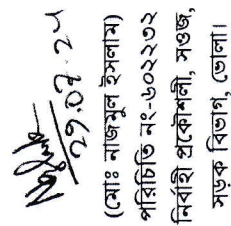 ২৭.০৭.২৫
(মোঃ নাজমুল ইসলাম)
পরিচিতি নং-৬০২২৩২
নির্বাহী প্রকৌশলী, সওজ,
সড়ক বিভাগ, ভোলা।